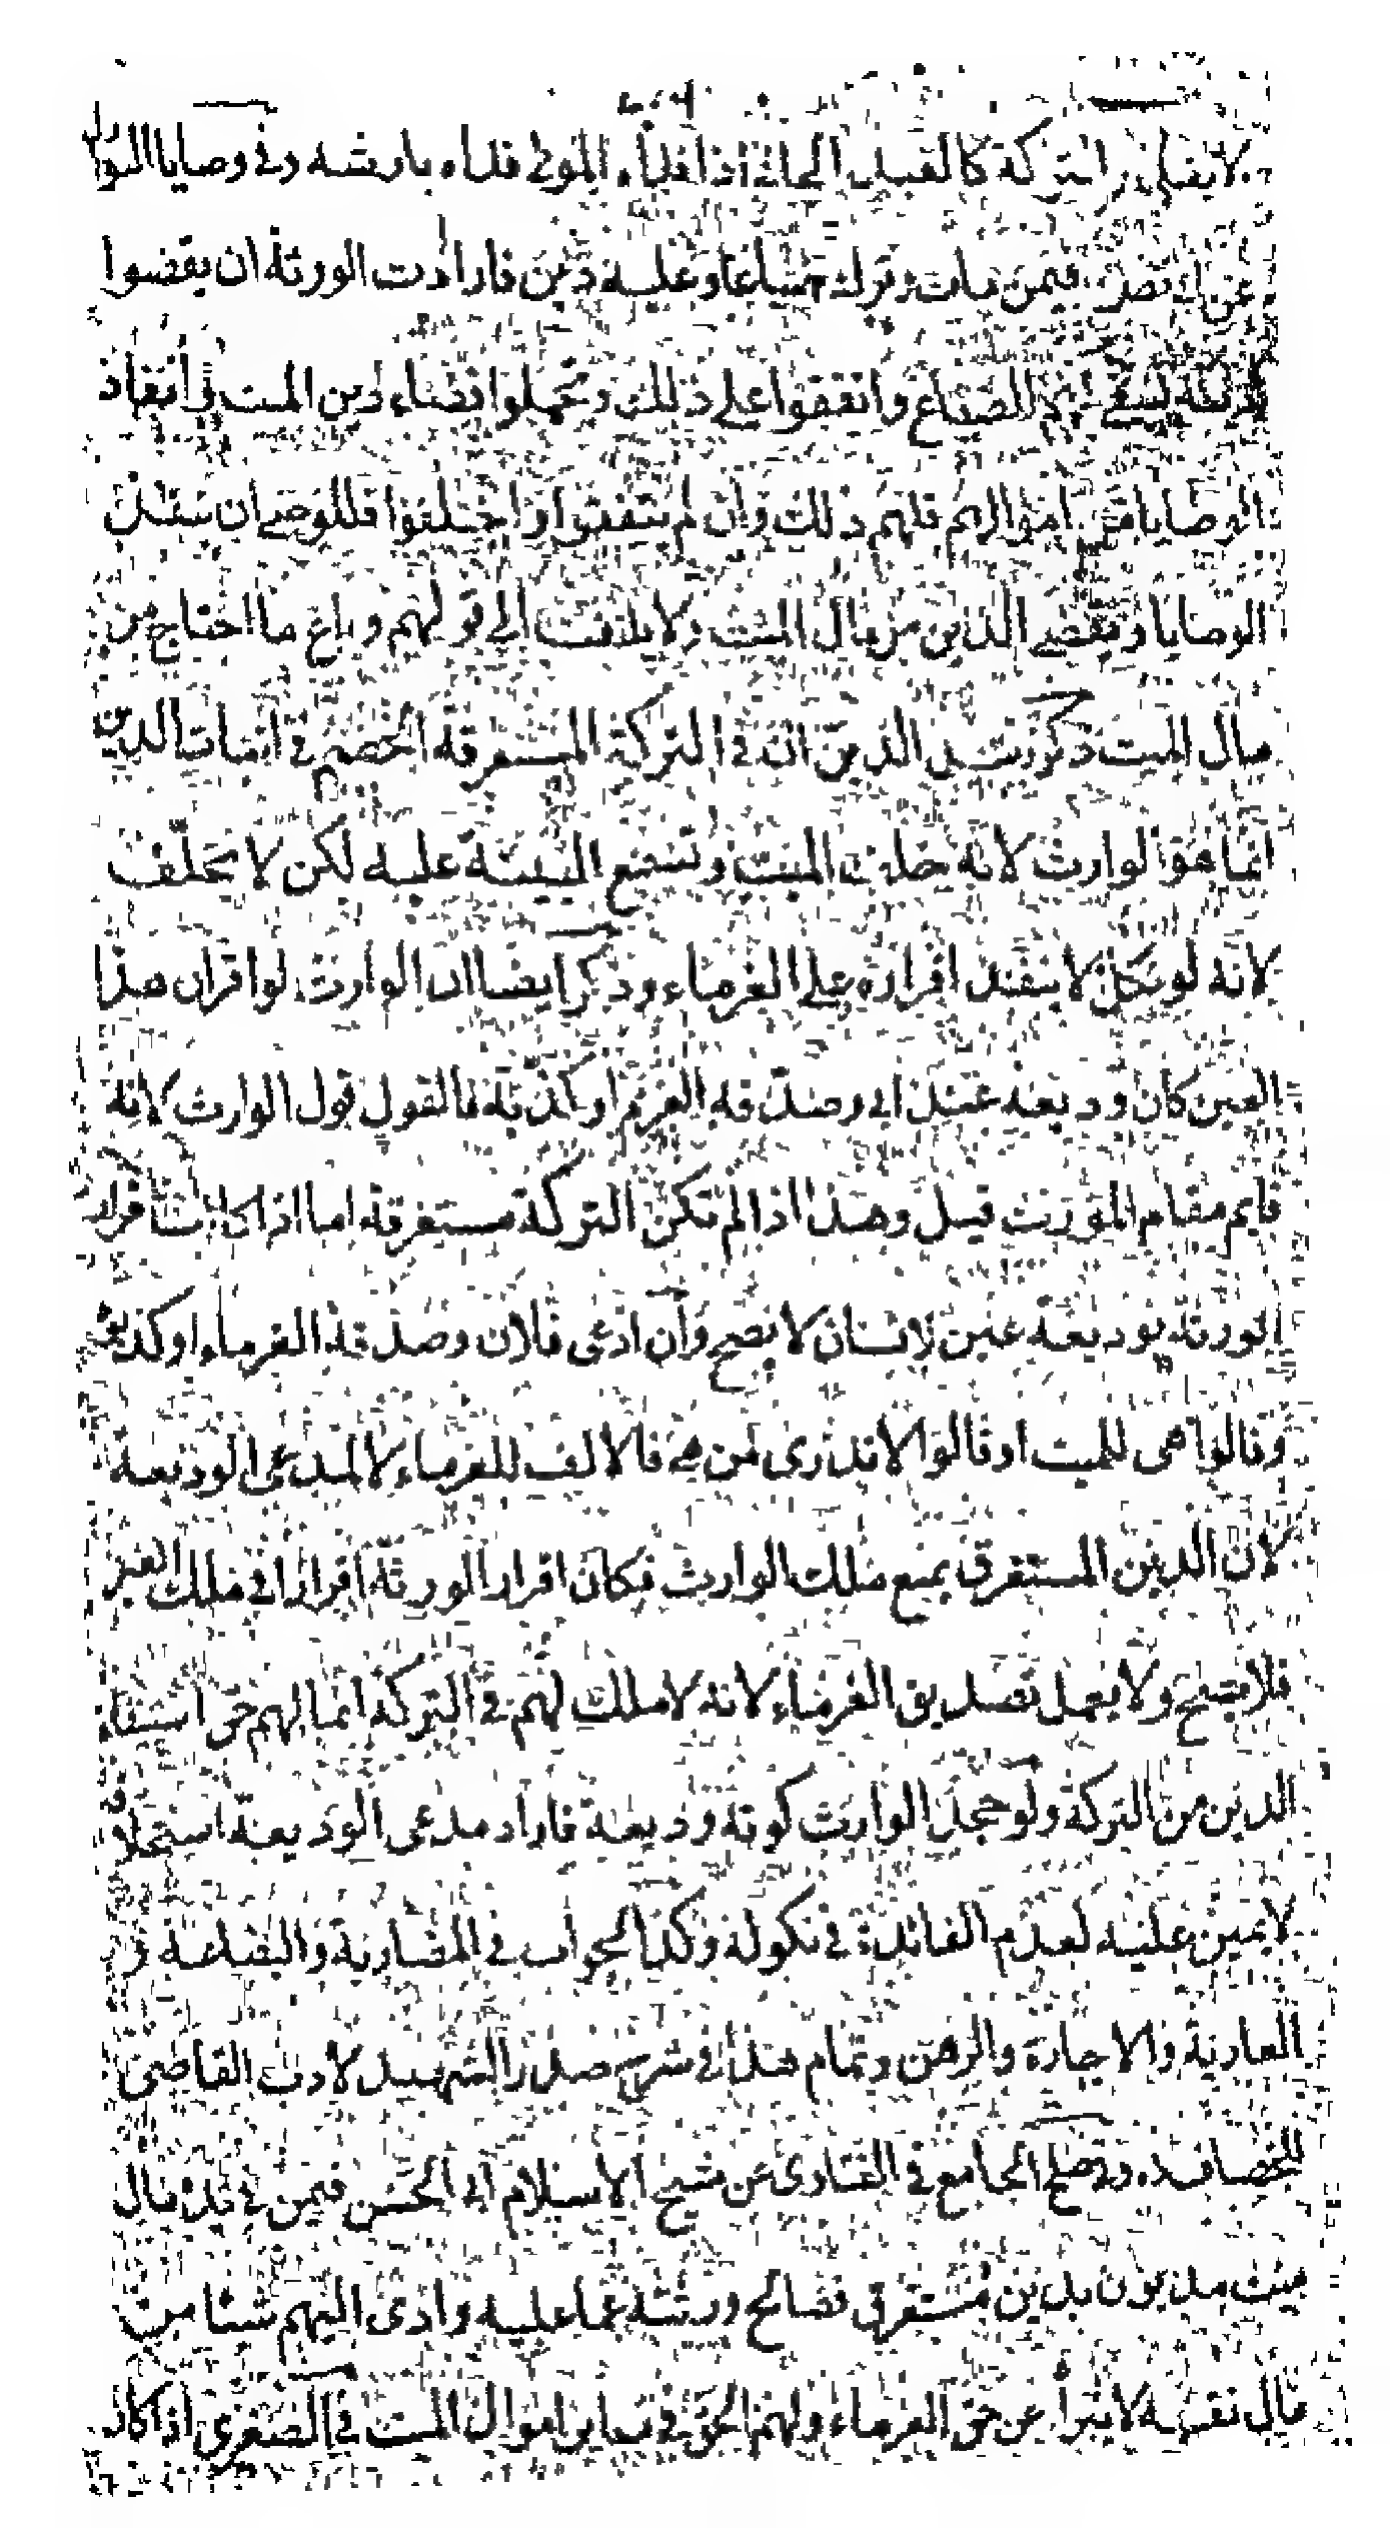 لا يقبل التركة كالعبد الجانى اذا فداه المولى فداه بارشه وفى وصايا النوازل
عن ابى نصر فيمن مات وترك ضياعا وعليه دين فارادت الورثة ان يقضوا
لهم الضياع واتفقوا على ذلك وتحملوا قضاء دين الميت وانفاذ
الوصايا من اموالهم فلهم ذلك وان لم يتفقوا واختلفوا فللوصى ان ينفذ
الوصايا ويقضى الدين من مال الميت ولا يلتفت الى قولهم وباع ما احتاج من
مال الميت ذكر رشيد الدين ان فى التركة المستغرقة الخصم فى اثبات الدين
انما هو الوارث لانه خلف الميت وتسمع البينة عليه لكن لا يحلف
لانه لو نكل لا ينفذ اقراره على الغرماء وذكر ايضا ان الوارث لو اقر ان هذا
العين كان وديعة عند ابى وصدقه الغريم او كذبه فالقول قول الوارث لانه
قايم مقام المورث قيل وهذا اذا لم تكن التركة مستغرقة اما اذا كانت فاقرار
الورثة بوديعة عين لانسان لا يصح وان ادعى فلان وصدقه الغرماء او كذبوه
وقالوا هى للميت او قالوا لا ندرى لمن هى فالالف للغرماء لا لمدعى الوديعة
لان الدين المستغرق يمنع ملك الوارث فكان اقرار الورثة اقرارا فى ملك الغير
فلا يصح ولا يعمل تصديق الغرماء لانه لا ملك لهم فى التركة انما لهم حق استيفاء
الدين من التركة ولو جحد الوارث كونه وديعة فاراد مدعى الوديعة استحلافه
لا يمين عليه لعدم الفائدة فى نكوله وكذا الجواب فى المضاربة والبضاعة و
العارية والاجارة والرهن وتمام هذا فى شرح صدر الشهيد لادب القاضى
للخصاف وفى صلح الجامع فى الفتاوى عن شيخ الاسلام ابى الحسن فيمن فى يده مال
ميت مديون بدين مستغرق فصالح ورثته عما عليه وادى اليهم شيئا من
مال نفسه لا يبرأ عن حق الغرماء ولهم الحق فى ساير اموال الميت فى الصغرى اذا كان